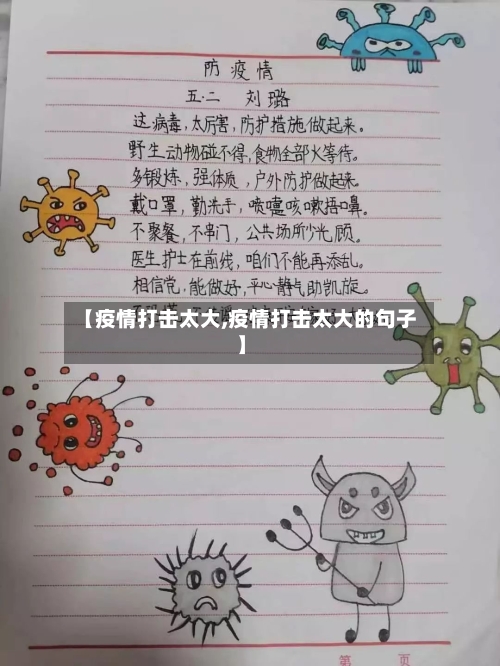 防疫情
五.二 刘璐
这病毒,太厉害,防护措施做起来。
野生动物碰不得,食物全部火等待。
多锻炼,强体质,户外防护做起来。
戴口罩,勤洗手,喷嚏咳嗽捂口鼻。
不聚餐,不串门,公共场所少光顾。
医生护士在前线,咱们不能再添乱。
相信党,能做好,平心静气助凯旋。
【疫情打击太大,疫情打击太大的句子
】
第 页